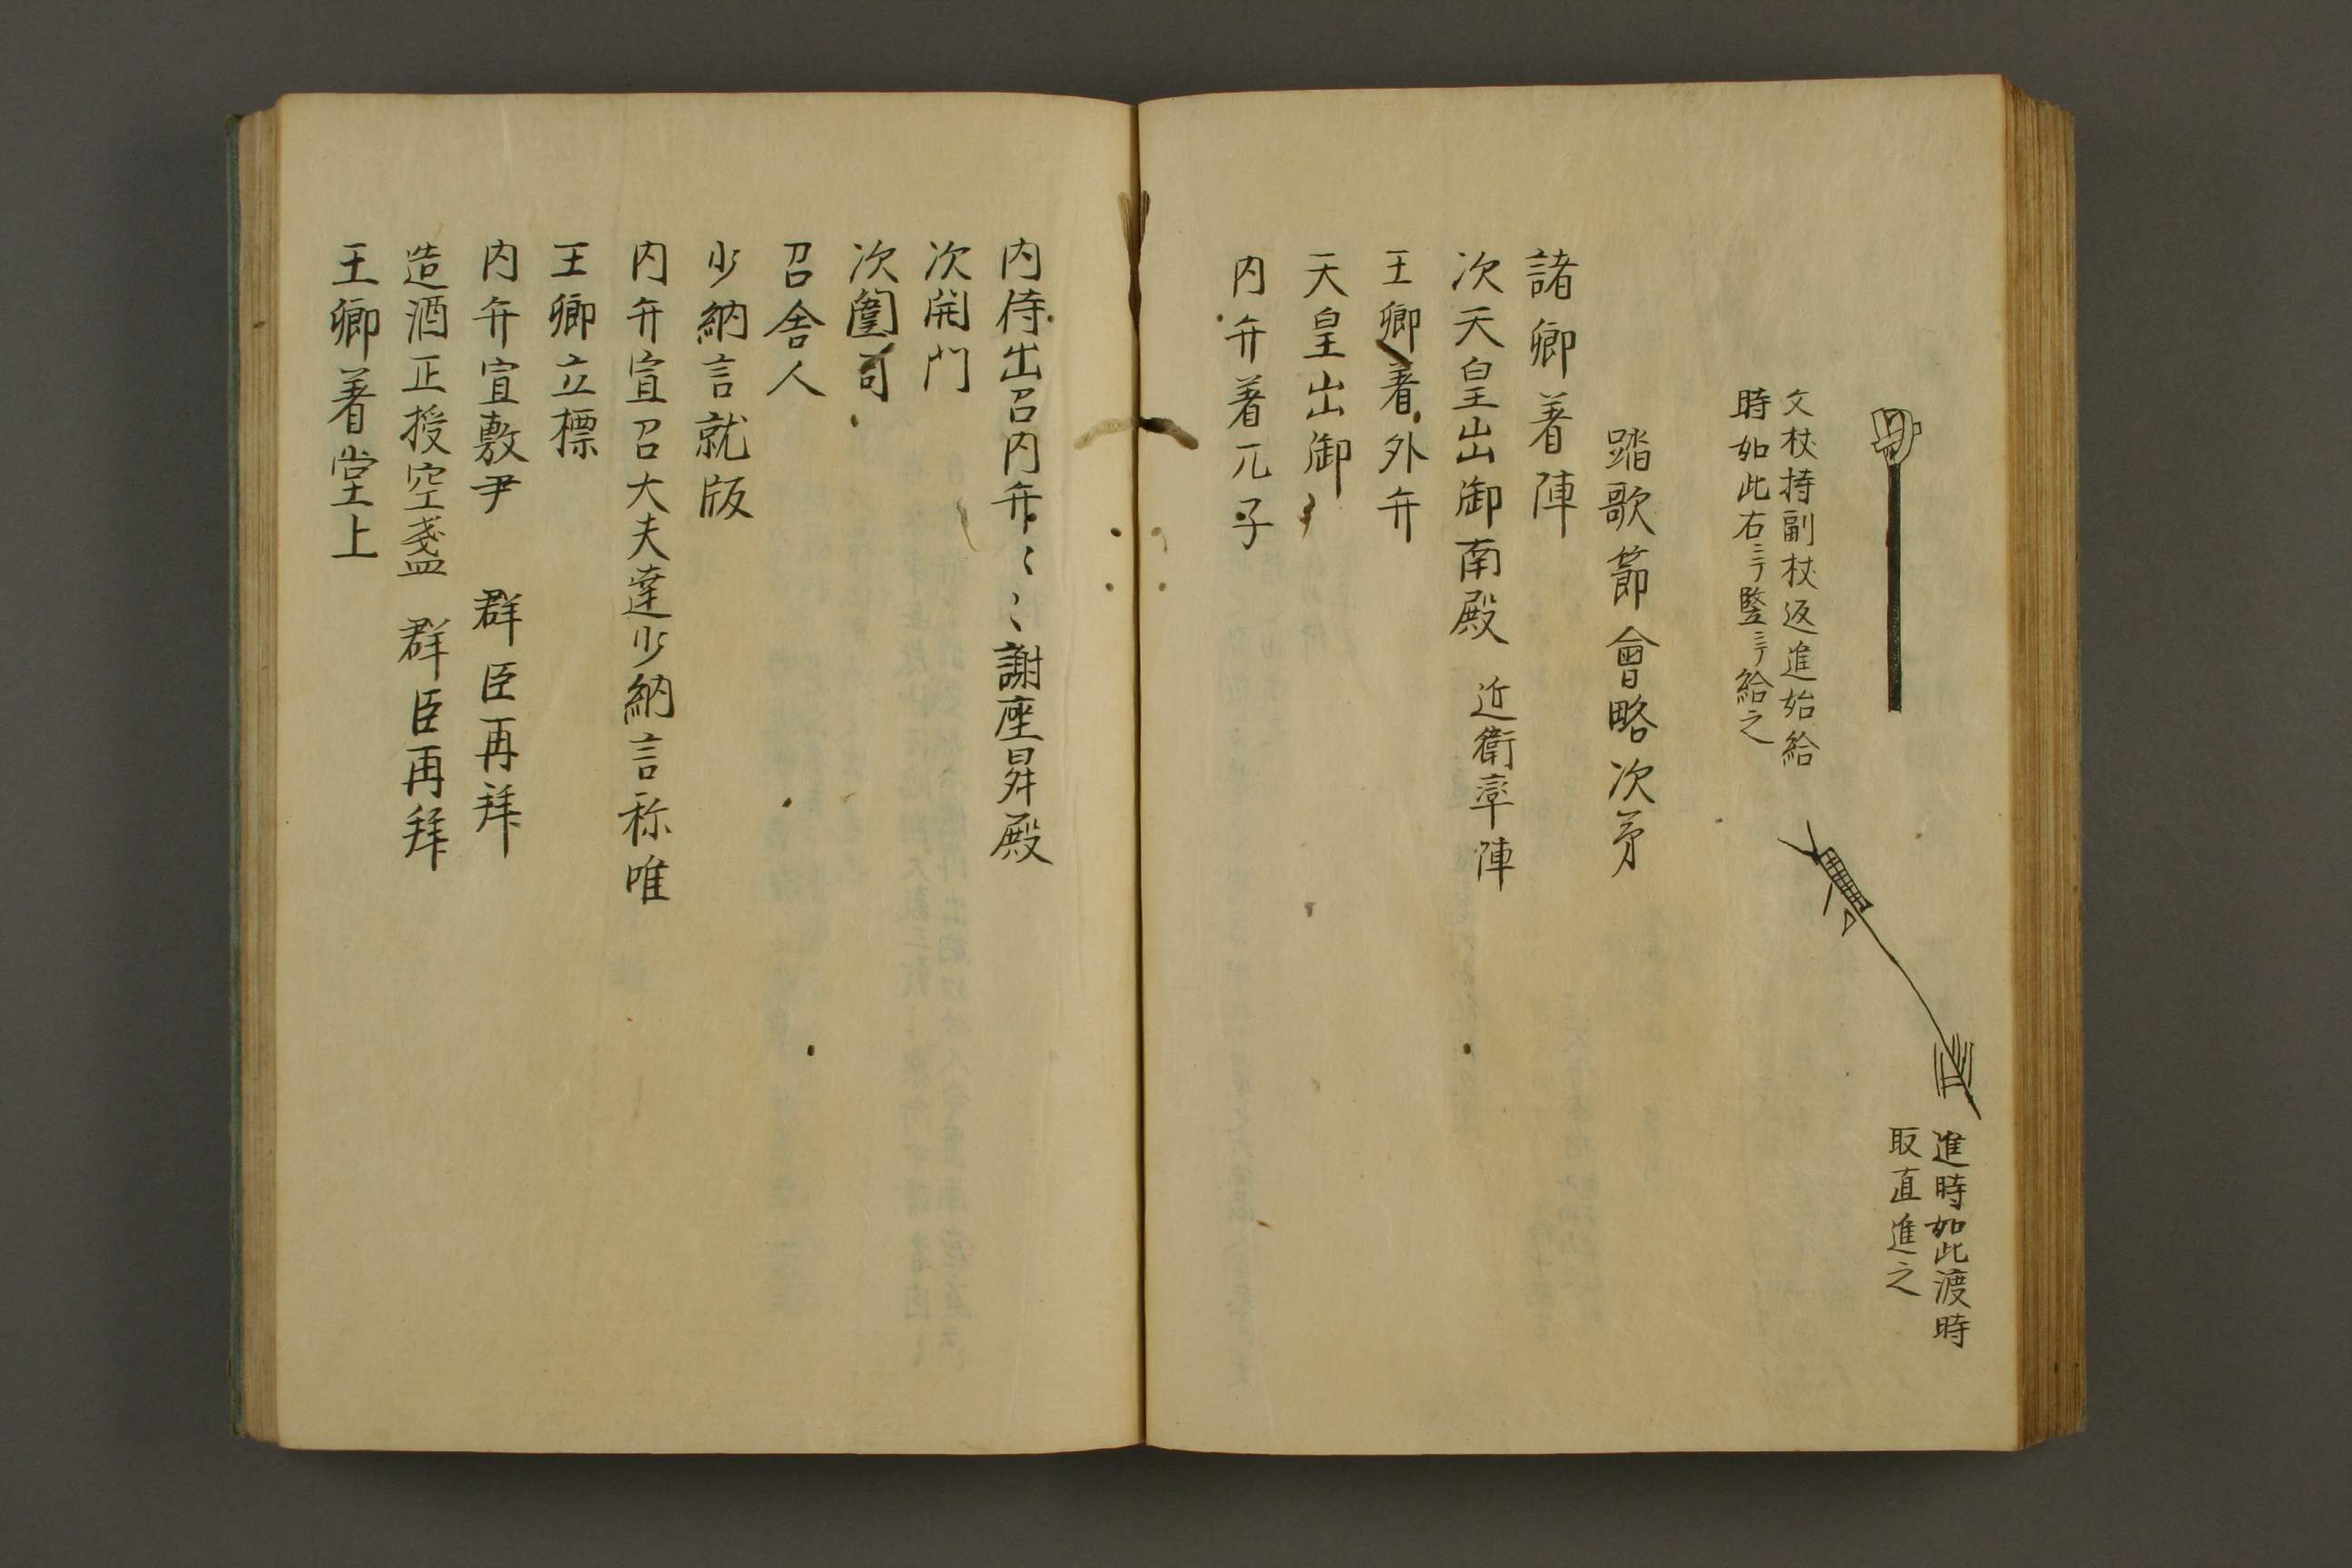 進時如此渡時
取直進之
文杖持副杖返進始給
時如此右ニテ竪ニテ給之
踏歌節會略次第
諸卿著陣
次天皇出御南殿 近衛率陣
王卿著外弁
天皇出御
内弁著兀子
内侍出召内弁〻〻謝座昇殿
次開門
次闈司
召舎人
少納言就版
内弁宣召大夫達少納言称唯
王卿立標
内弁宣敷尹 群臣再拜
造酒正授空盞 群臣再拜
王卿著堂上